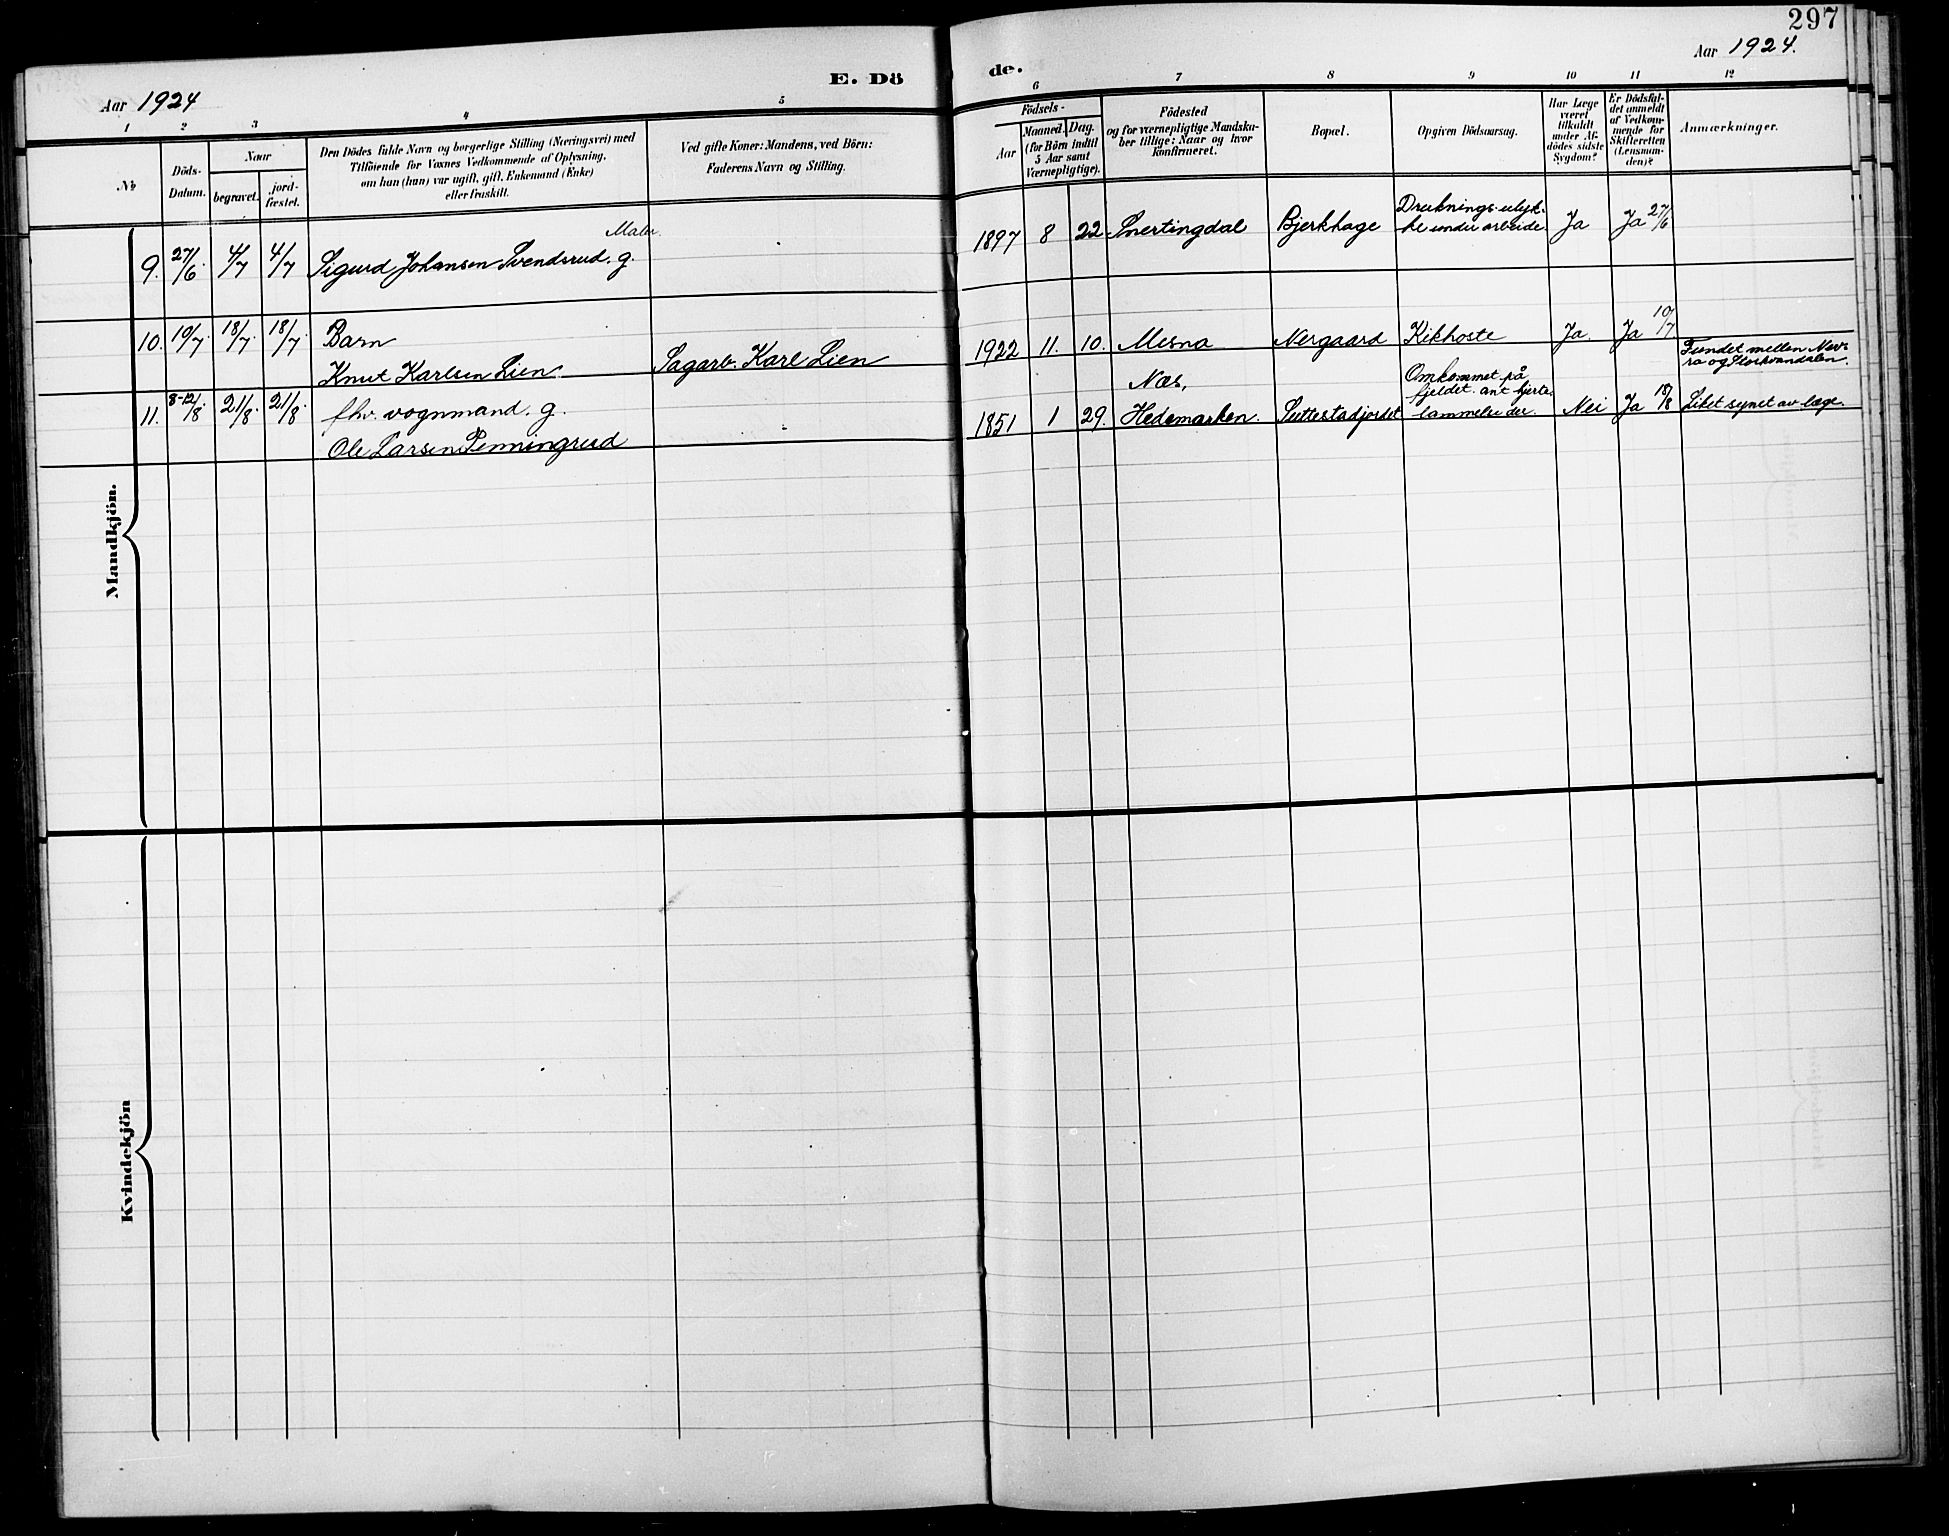 297
Aar 1924
E. Dö
de.
Aar 1924.
1 2 3 4 5
6 7 8 9 10 11 12
No
Döds-
Datum.
Naar
begravet.
jord-
fæstet.
Den Dödes fulde Navn og borgerlige Stilling (Næringsvei) med
Tilföiende for Voxnes Vedkommende af Oplysning,
om han (hun) var ugift, gift, Enkemand (Enke)
eller fraskilt.
Ved gifte Koner: Mandens, ved Börn:
Faderens Navn og Stilling.
Födsels-
Aar
Maaned. Dag.
(for Börn indtil
5 Aar samt
Værnepligtige).
Födested
og for værnepligtige Mandska-
ber tillige: Naar og hvor
konfirmeret.
Bopæl.
Opgiven Dödsaarsag.
Har Læge
været
tilkaldt
under Af-
dödes sidste
Sygdom?
Er Dödsfal-
det anmeldt
af Vedkom-
mende for
Skifteretten
(Lensman-
den)?
Anmærkninger.
Mandkjön.
Maler.
9. 27/6. 4/7 4/7 Sigurd Johansen Svendsrud. g.
1897 8 22 Snertingdal Bjerkhage
Druknings-ulyk-
ke under arbeide.
Ja Ja 27/6
10. 10/7. 18/7. 18/7. Barn
Knut Karlsen Lien.
Sagarb. Karl Lien
1922 11. 10. Mesna Nergaard Kikhoste Ja. Ja 10/7
11. 8-12/8. 21/8. 21/8. fhv. vognmand. g.
Ole Larsen Penningrud
1851 1 29.
Næs,
Hedemarken. Suttestadjordet
Omkommet på
fjeldet. ant hjerte-
lammelse der.
Nei Ja 18/8
Fundet mellen Nev-
ra og Storkvandalen.
Liket synet av læge.
Kvindekjön